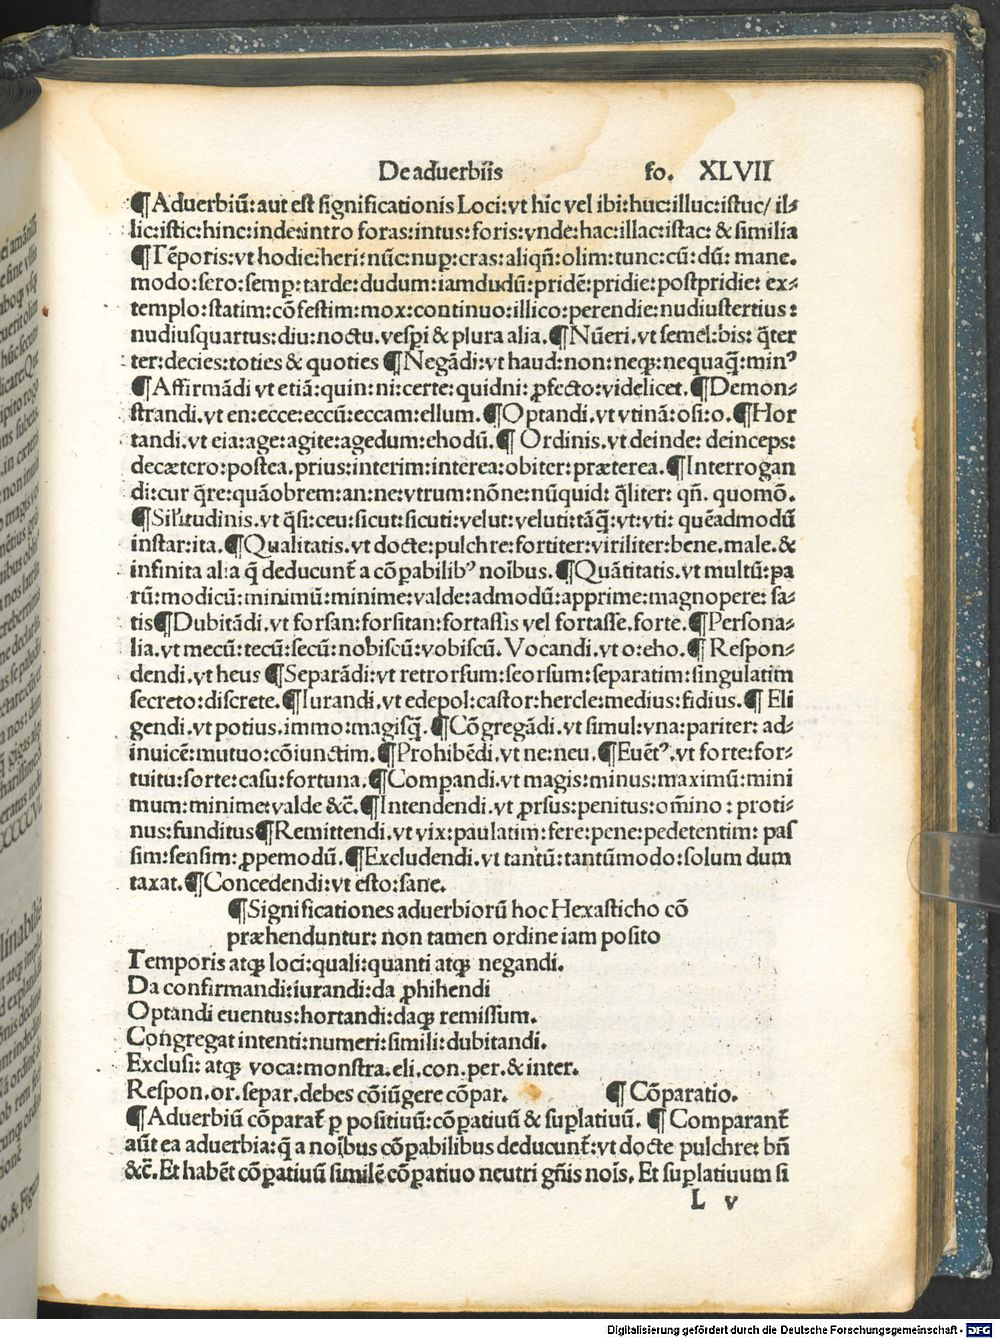 De aduerbiis fo. XLVII
¶Aduerbiū: aut est significationis Loci: vt hic vel ibi: huc: illuc: istuc/ il⸗
lic: istic: hinc: inde: intro foras: intus: foris: vnde: hac: illac: istac: & similia
¶Tēporis: vt hodie: heri: nūc: nuꝑ: cras: aliqñ: olim: tunc: cū: dū: mane.
modo: sero: semꝑ: tarde: dudum: iamdudū: pridē: pridie: postpridie: ex⸗
templo: statim: cōfestim: mox: continuo: illico: perendie: nudiustertius:
nudiusquartus: diu: noctu. vesꝑi & plura alia. ¶Nūeri. vt semel: bis: q̄ter
ter: decies: toties & quoties ¶Negādi: vt haud: non: neqꝫ: nequaq̄: minꝰ
¶Affirmādi vt etiā: quin: ni: certe: quidni: ꝓfecto: videlicet. ¶Demon⸗
strandi. vt en: ecce: eccū: eccam: ellum. ¶Optandi. vt vtinā: osi: o. ¶Hor
tandi. vt eia: age: agite: agedum: ehodū. ¶ Ordinis. vt deinde: deinceps:
decætero: postea. prius: interim: interea: obiter: præterea. ¶Interrogan
di: cur q̄re: quāobrem: an: ne: vtrum: nōne: nūquid: q̄liter: qñ. quomō.
¶Sil̄itudinis. vt q̄si: ceu: sicut: sicuti: velut: veluti: tāq̄: vt: vti: quēadmodū
instar: ita. ¶Qualitatis. vt docte: pulchre: fortiter: viriliter: bene. male. &
infinita alia q̄ deducunt̄ a cōꝑabilibꝰ noībus. ¶Quātitatis. vt multū: pa
rū: modicū: minimū: minime: valde: admodū: apprime: magnopere: sa⸗
tis ¶Dubitādi. vt forsan: forsitan: fortassis vel fortasse. forte. ¶Persona⸗
lia. vt mecū: tecū: secū: nobiscū: vobiscū. Vocandi. vt o: eho. ¶ Respon⸗
dendi. vt heus ¶Separādi: vt retrorsum: seorsum: separatim: singulatim
secreto: discrete. ¶Iurandi. vt edepol: castor: hercle: medius: fidius. ¶ Eli
gendi. vt potius. immo: magisq̄. ¶Cōgregādi. vt simul: vna: pariter: ad⸗
inuicē: mutuo: cōiunctim. ¶Prohibēdi. vt ne: neu. ¶Euētꝰ. vt forte: for⸗
tuitu: sorte: casu: fortuna. ¶Comꝑandi. vt magis: minus: maximū: mini
mum: minime: valde &c̄. ¶Intendendi. vt ꝓrsus: penitus: om̄ino: proti⸗
nus: funditus ¶Remittendi. vt vix: paulatim: fere: pene: pedetentim: pas
sim: sensim: ꝓpemodū. ¶Excludendi. vt tantū: tantūmodo: solum dum
taxat. ¶Concedendi: vt esto: sane.
¶Significationes aduerbiorū hoc Hexasticho cō
præhenduntur: non tamen ordine iam posito
Temporis atqꝫ loci: quali: quanti atqꝫ negandi.
Da confirmandi: iurandi: da ꝓhihendi
Optandi euentus: hortandi: daqꝫ remissum.
Congregat intenti: numeri: simili: dubitandi.
Exclusi: atqꝫ voca: monstra. eli. con. per. & inter.
Respon. or. separ. debes cōiūgere cōpar. ¶ Cōparatio.
¶Aduerbiū cōparat̄ ꝑ positiuū: cōꝑatiuū & suꝑlatiuū. ¶ Comparant̄
aūt ea aduerbia: q̄ a noībus cōꝑabilibus deducunt̄: vt docte pulchre: bñ
&c̄. Et habēt cōꝑatiuū similē cōꝑatiuo neutri gñis nois. Et suꝑlatiuum si
L v
Digitalisierung gefördert durch die Deutsche Forschungsgemeinschaft - DFG